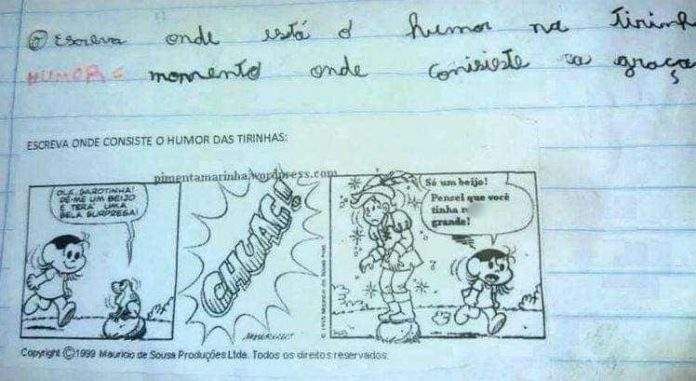 Escreva onde está o humor na
HUMOR = momento onde consieste a graça
ESCREVA ONDE CONSISTE O HUMOR DAS TIRINHAS:
pimentamarinha.wordpress.com
OLÁ, GAROTINHA!
DÊ-ME UM BEIJO
E TERÁ UMA
BELA SURPRESA!
CHUAC!
MAURICIO
© 1999 Mauricio de Sousa Prod.
Só um beijo!
Pensei que você
tinha
grande!
Copyright ©1999 Mauricio de Sousa Produções Ltda. Todos os direitos reservados.